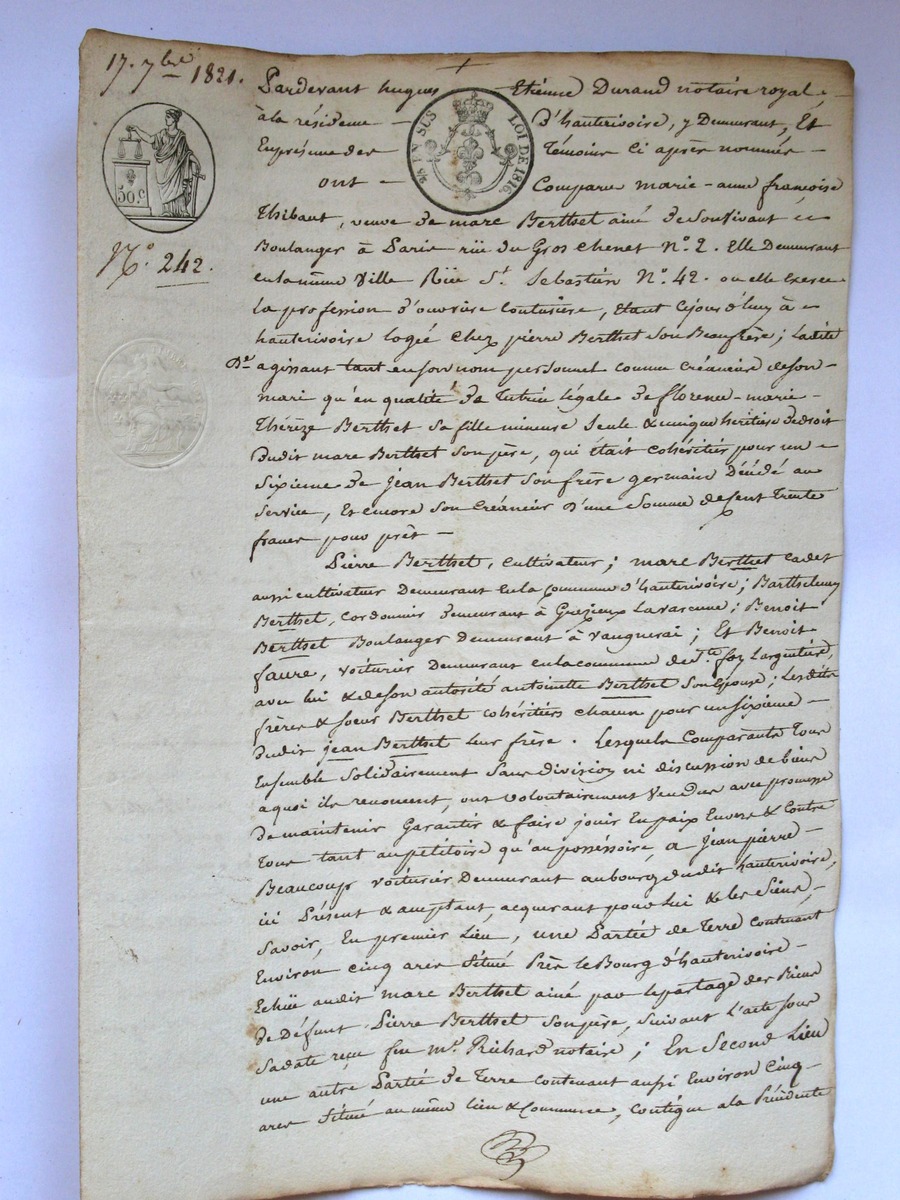 17. 7bre 1821.
Pardevant hugues Etienne Durand notaire royal
à la résidence d'hauterivoire, y Demeurant, Et
En présence des Témoins Ci après nommés
ont Comparu marie-anne françoise
Thibaut, veuve de marc Berthet ainé de Son vivant
Boulanger à Paris rüe du Gros Chenet N°. 2. Elle Demeurant
en la même Ville Rüe St. Sebastien N°. 42. ou elle Exerce
la profession d'ouvrière Couturière, Etant Cejourd'huy à
hauterivoire logée Chez pierre Berthet Son Beaufrère; Ladite
De. agissant tant en son nom personnel comme Créancière de son
mari qu'en qualité de Tutrice Légale de florence-marie-
Thérèze Berthet Sa fille mineure Seule & unique héritière de droit
dudit marc Berthet Son père, qui était Cohéritier pour un
Sixieme de Jean Berthet Son frère germain Décédé au
Service, Et encore Son Créancier d'une Somme de Cent Trente
francs pour prêt
Pierre Berthet, Cultivateur; marc Berthet Cadet
aussi cultivateur Demeurant En la Commune d'hauterivoire; Barthelemy
Berthet, Cordonnier demeurant à Grézieux Lavarenne; Benoit
Berthet Boulanger Demeurant à Vaugnerai; Et Benoit
faure, voiturier Demeurant en la commune de Ste. foy Largentière,
avec lui & de son autorité antoinette Berthet Son Epouse; Lesdits
frères & soeur Berthet cohéritiers chacun pour un Sixieme
dudit Jean Berthet leur frère. Lesquels Comparants Tous
Ensemble Solidairement Sans division ni discussion de biens
a quoi ils renoncent, ont volontairement Vendus avec promesse
de maintenir Garantir & faire jouir En paix Envers & Contre
Tous tant au pétitoire qu'au posséssoire, a Jean pierre
Beaucoup voiturier Demeurant au bourg dudit hauterivoire,
ici Présent & acceptant, acquerant pour Lui & les Siens,
Savoir, En premier Lieu, une Partie de Terre contenant
Environ cinq ares Située Près le Bourg d'hauterivoire
Echüe audit marc Berthet ainé par le partage des Biens
de Défunt Pierre Berthet Son père, Suivant L'acte Sous
Sa date reçu feu me. Richard notaire; En Second Lieu
une autre Partie de Terre contenant aussi Environ Cinq
ares Située au même lieu & Commune, Contigue a la Précédente
50.C
N°. 242.
EN SUS
LOI DE 1816.